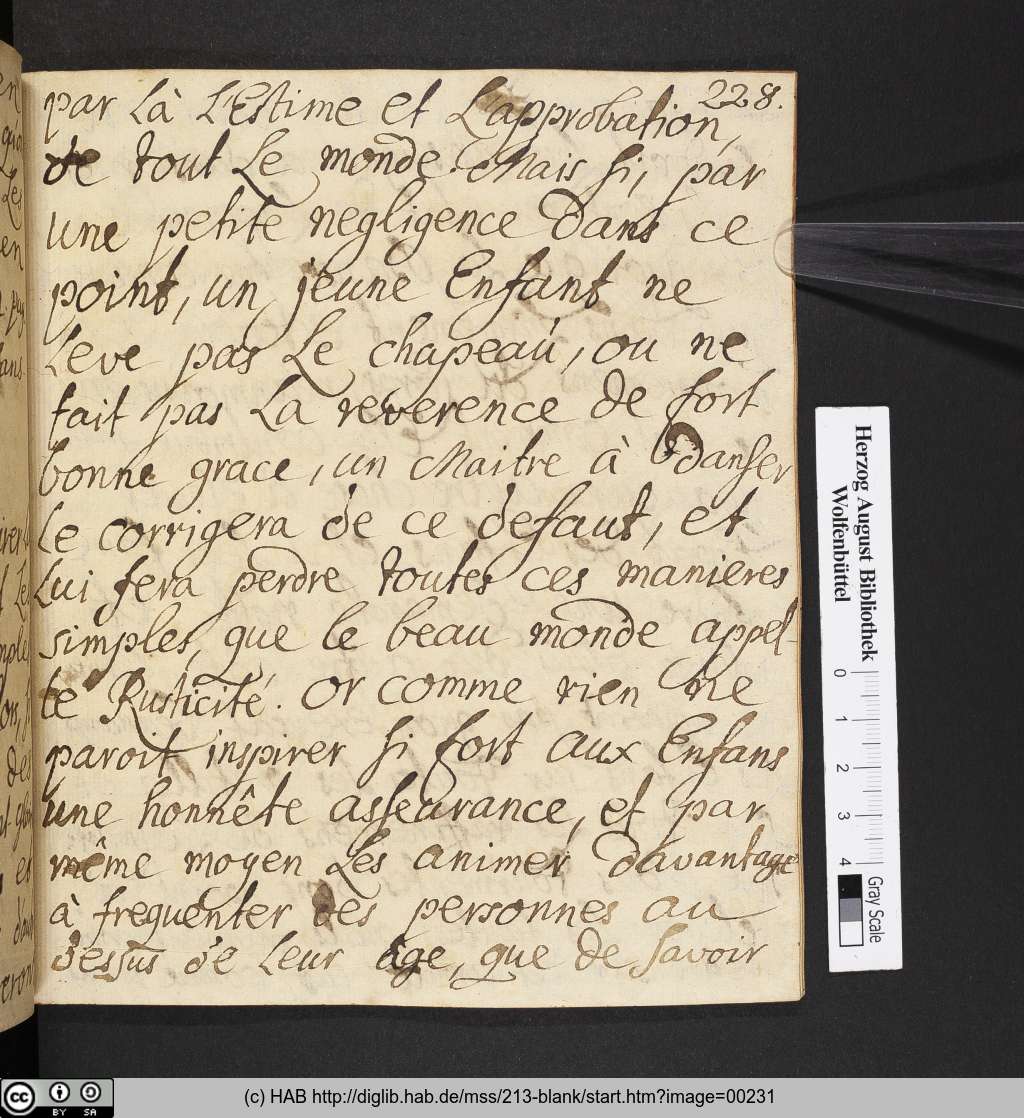 228.
par Là L'Estime et L'approbation,
de tout Le monde. Mais si, par
une petite negligence dans ce
point, un jeune Enfant ne
Leve pas Le chapeau, ou ne
fait pas La reverence de fort
bonne grace, un Maitre à danser
Le corrigera de ce defaut, et
Lui fera perdre toutes ces manieres
simples, que le beau monde appel-
le Rusticité. Or comme rien ne
paroit inspirer si fort aux Enfans
une honnête asseurance, et par
même moyen Les animer davantage
à frequenter des personnes au
dessus de Leur âge, que de savoir
Herzog August Bibliothek
Wolfenbüttel
0 1 2 3 4
Gray Scale
cc BY SA
(c) HAB http://diglib.hab.de/mss/213-blank/start.htm?image=00231